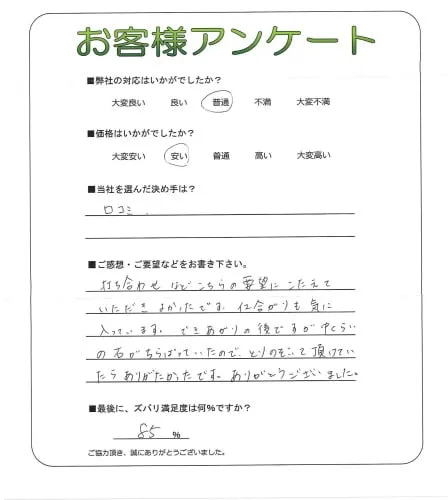 お客様アンケート
■弊社の対応はいかがでしたか？
大変良い 良い 普通 不満 大変不満
■価格はいかがでしたか？
大変安い 安い 普通 高い 大変高い
■当社を選んだ決め手は？
口コミ.
■ご感想・ご要望などをお書き下さい。
打ち合わせなどこちらの要望にこたえて
いただきよかったです。仕合がりも気に
入っています。できあがりの後ですが中くらい
の石がちらばっていたので、とりのぞいて頂けてい
たらありがたかったです。ありがとうございました。
■最後に、ズバリ満足度は何％ですか？
85 ％
ご協力頂き、誠にありがとうございました。